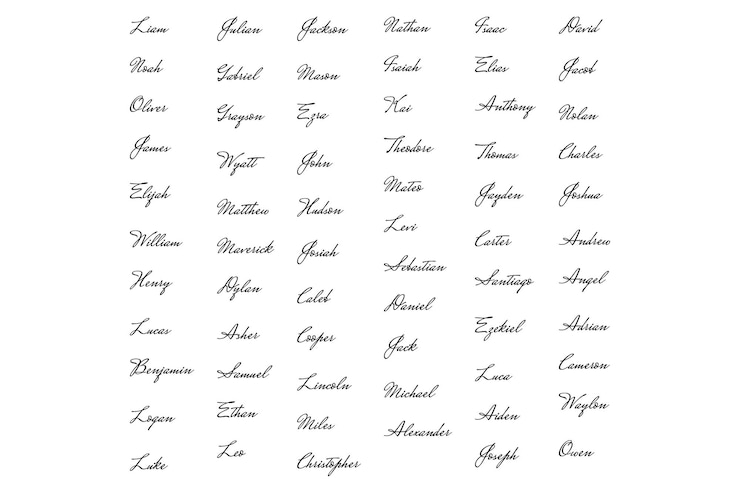 Liam
Noah
Oliver
James
Elijah
William
Henry
Lucas
Benjamin
Logan
Luke
Julian
Gabriel
Grayson
Wyatt
Matthew
Maverick
Dylan
Asher
Samuel
Ethan
Leo
Jackson
Mason
Ezra
John
Hudson
Josiah
Caleb
Cooper
Lincoln
Miles
Christopher
Nathan
Isaiah
Kai
Theodore
Mateo
Levi
Sebastian
Daniel
Jack
Michael
Alexander
Isaac
Elias
Anthony
Thomas
Jayden
Carter
Santiago
Ezekiel
Luca
Aiden
Joseph
David
Jacob
Nolan
Charles
Joshua
Andrew
Angel
Adrian
Cameron
Waylon
Owen